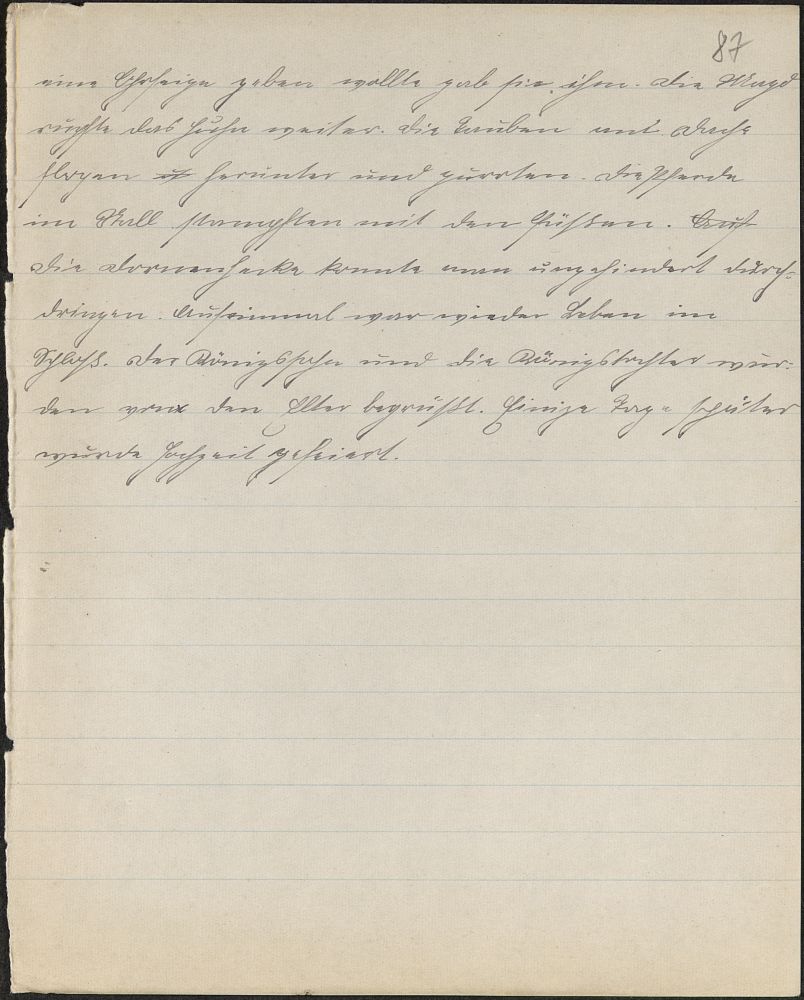 87
eine Ohrfeige geben wollte gab sie ihm. Die Magd
rupfte das Huhn weiter. Die Tauben auf Dache
flogen herunter und gurrten. Die Pferde
im Stall stampften mit den Füßen. Auf
Die Dornenhecke konnte man ungehindert durch-
dringen. Aufeinmal war wieder Leben im
Schloß. Der Königssohn und die Königstochter wur-
den von den Elter begrüßt. Einige Tage später
wurde Hochzeit gefeiert.